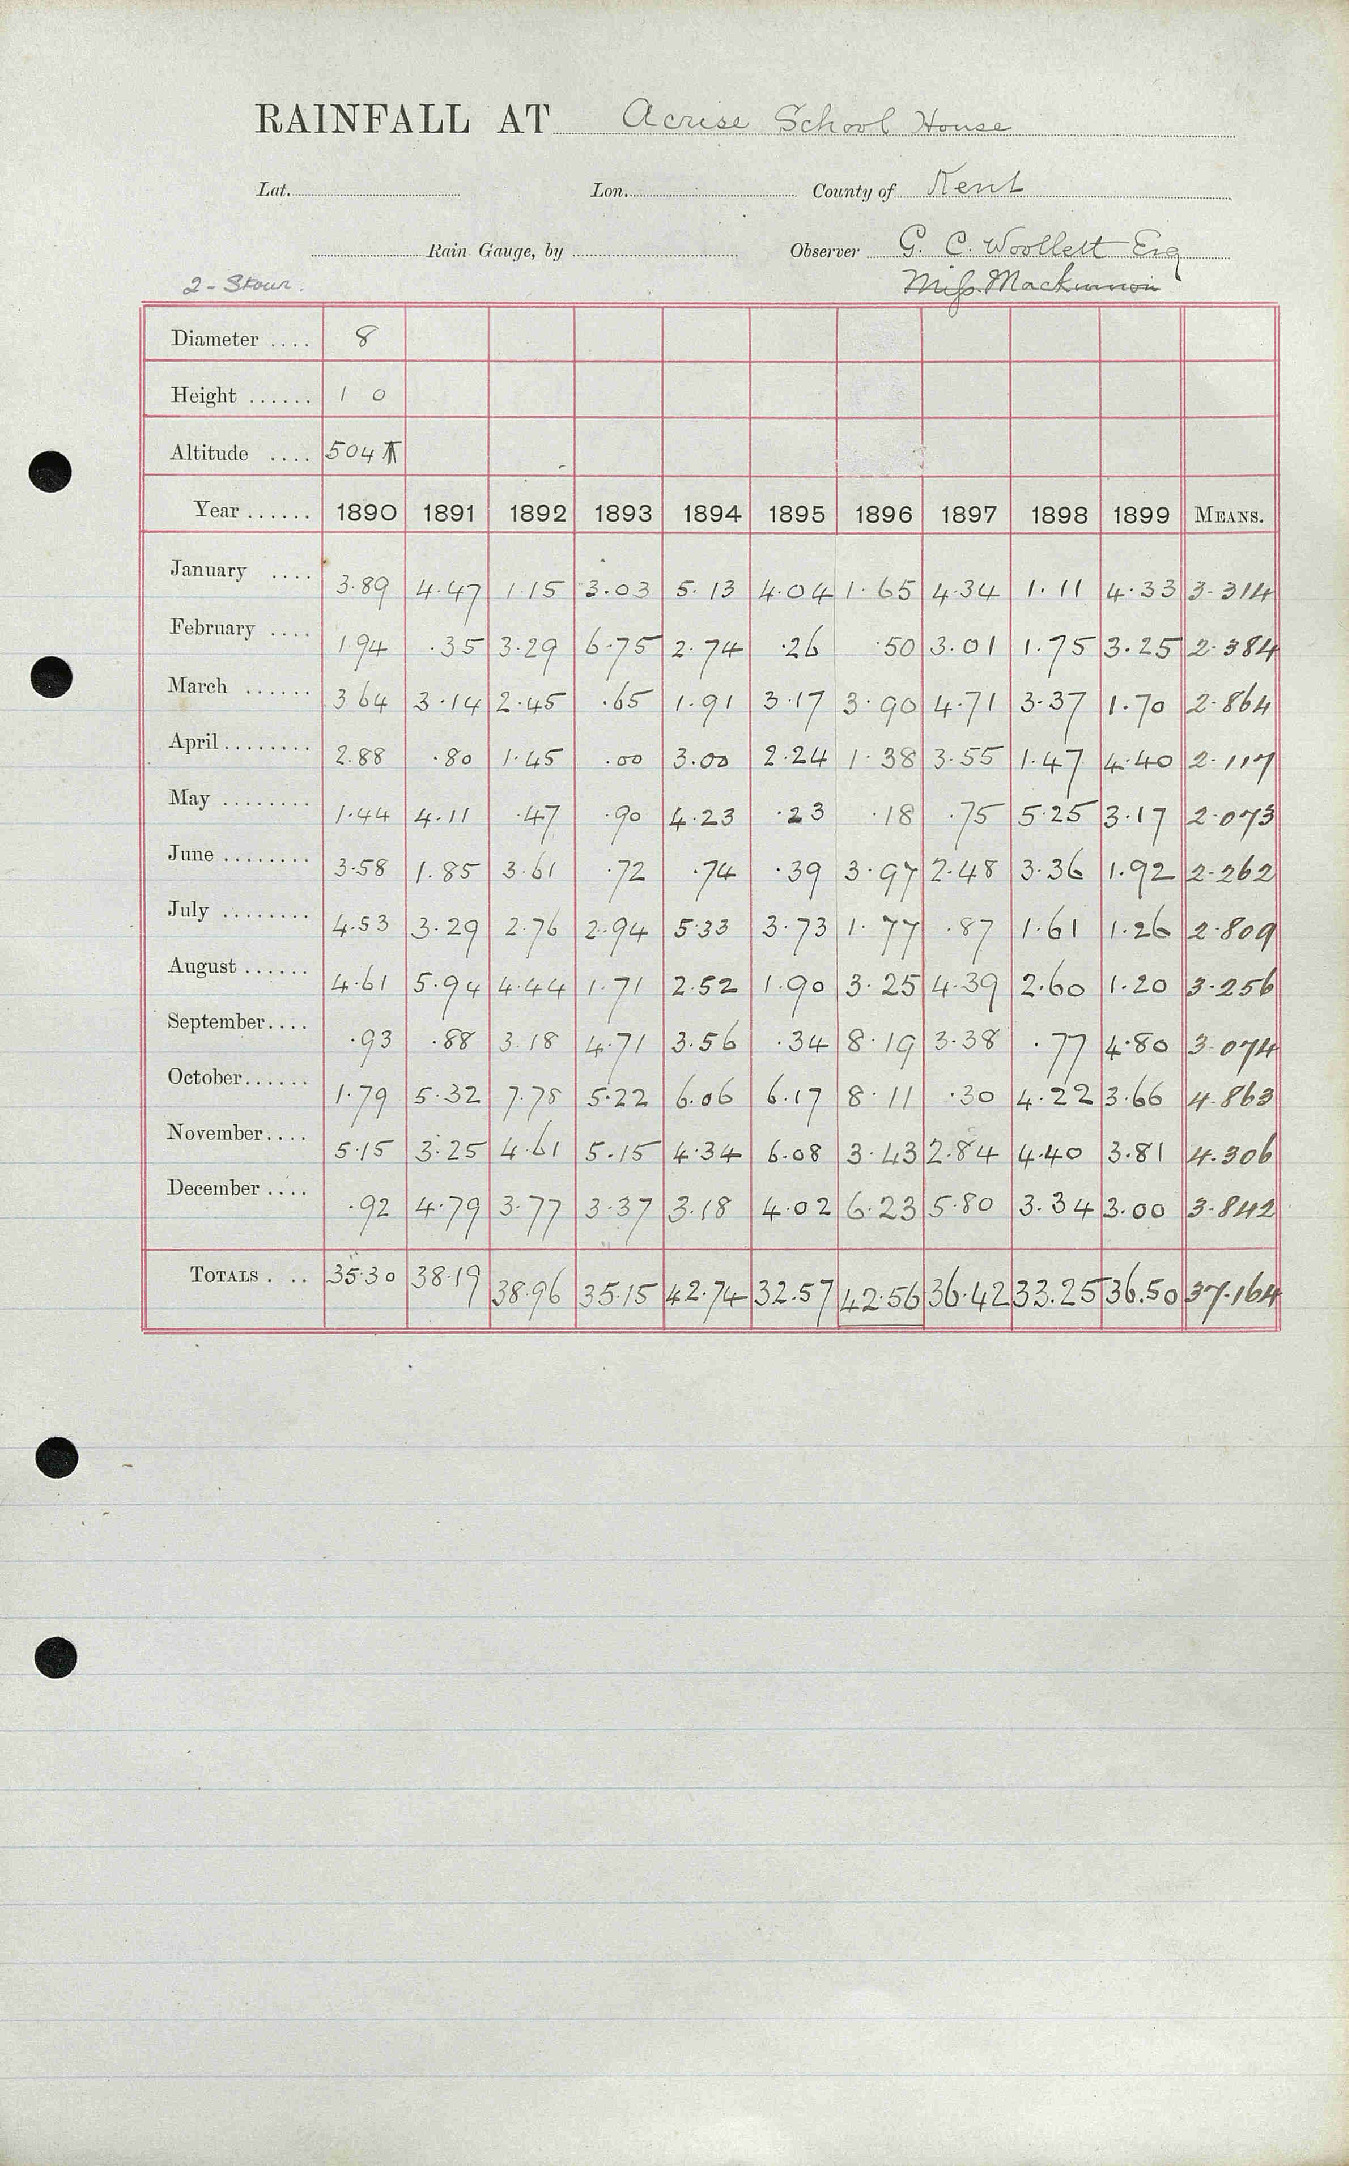 RAINFALL AT Acrise School House
Lat. Lon. County of Kent
Rain Gauge, by Observer G. C. Woollett Esq
2 - Stour. Miss Mackinnon
Diameter .... 8
Height ...... 1 0
Altitude .... 504 T
Year ...... 1890 1891 1892 1893 1894 1895 1896 1897 1898 1899 MEANS.
January .... 3.89 4.47 1.15 3.03 5.13 4.04 1.65 4.34 1.11 4.33 3.314
February .... 1 94 .35 3.29 6.75 2.74 .26 .50 3.01 1.75 3.25 2.384
March ...... 3 64 3.14 2.45 .65 1.91 3.17 3.90 4.71 3.37 1.70 2.864
April ........ 2.88 .80 1.45 .00 3.00 2.24 1.38 3.55 1.47 4.40 2.117
May ........ 1.44 4.11 .47 .90 4.23 .23 .18 .75 5.25 3.17 2.073
June ........ 3.58 1.85 3.61 .72 .74 .39 3.97 2.48 3.36 1.92 2.262
July ........ 4.53 3.29 2.76 2.94 5.33 3.73 1.77 .87 1.61 1.26 2.809
August ...... 4.61 5.94 4.44 1.71 2.52 1.90 3.25 4.39 2.60 1.20 3.256
September.... .93 .88 3.18 4.71 3.56 .34 8.19 3.38 .77 4.80 3.074
October...... 1.79 5.32 7.78 5.22 6.06 6.17 8.11 .30 4.22 3.66 4.863
November.... 5.15 3.25 4.61 5.15 4.34 6.08 3.43 2.84 4.40 3.81 4.306
December .... .92 4.79 3.77 3.37 3.18 4.02 6.23 5.80 3.34 3.00 3.842
TOTALS . .. 35.30 38.19 38.96 35.15 42.74 32.57 42.56 36.42 33.25 36.50 37.164